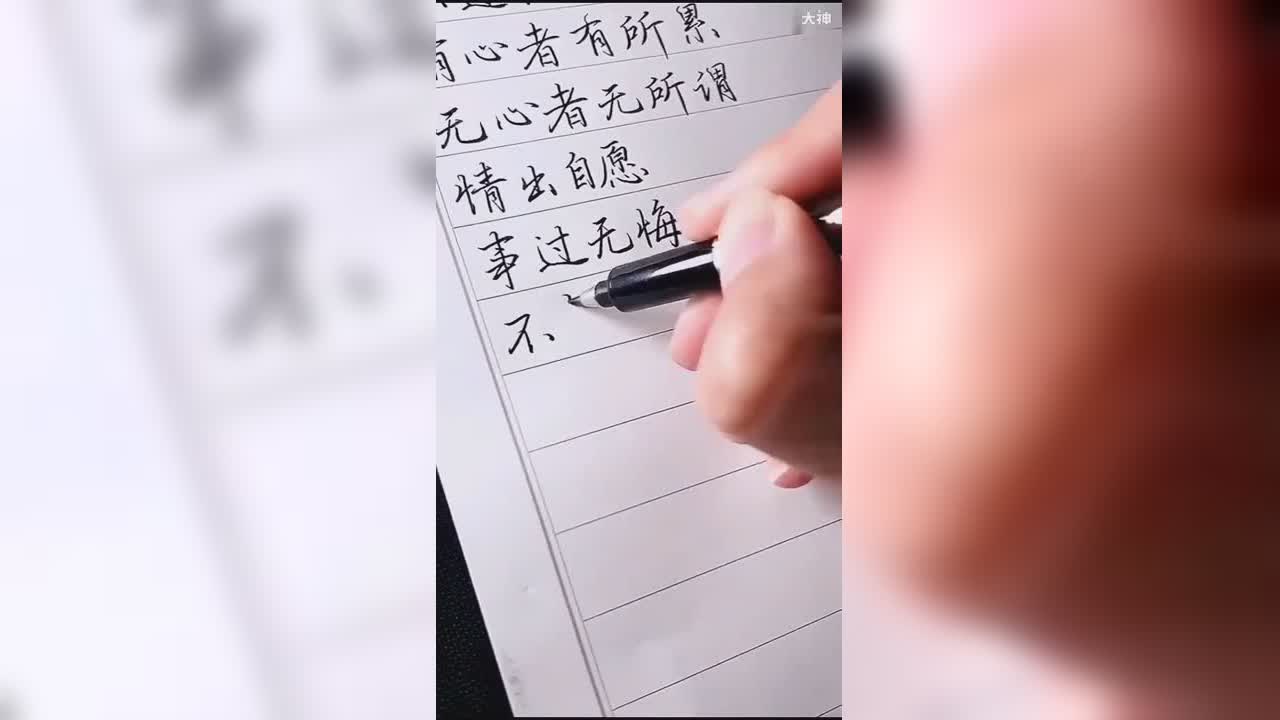 大神
有心者有所累
无心者无所谓
情出自愿
事过无悔
不